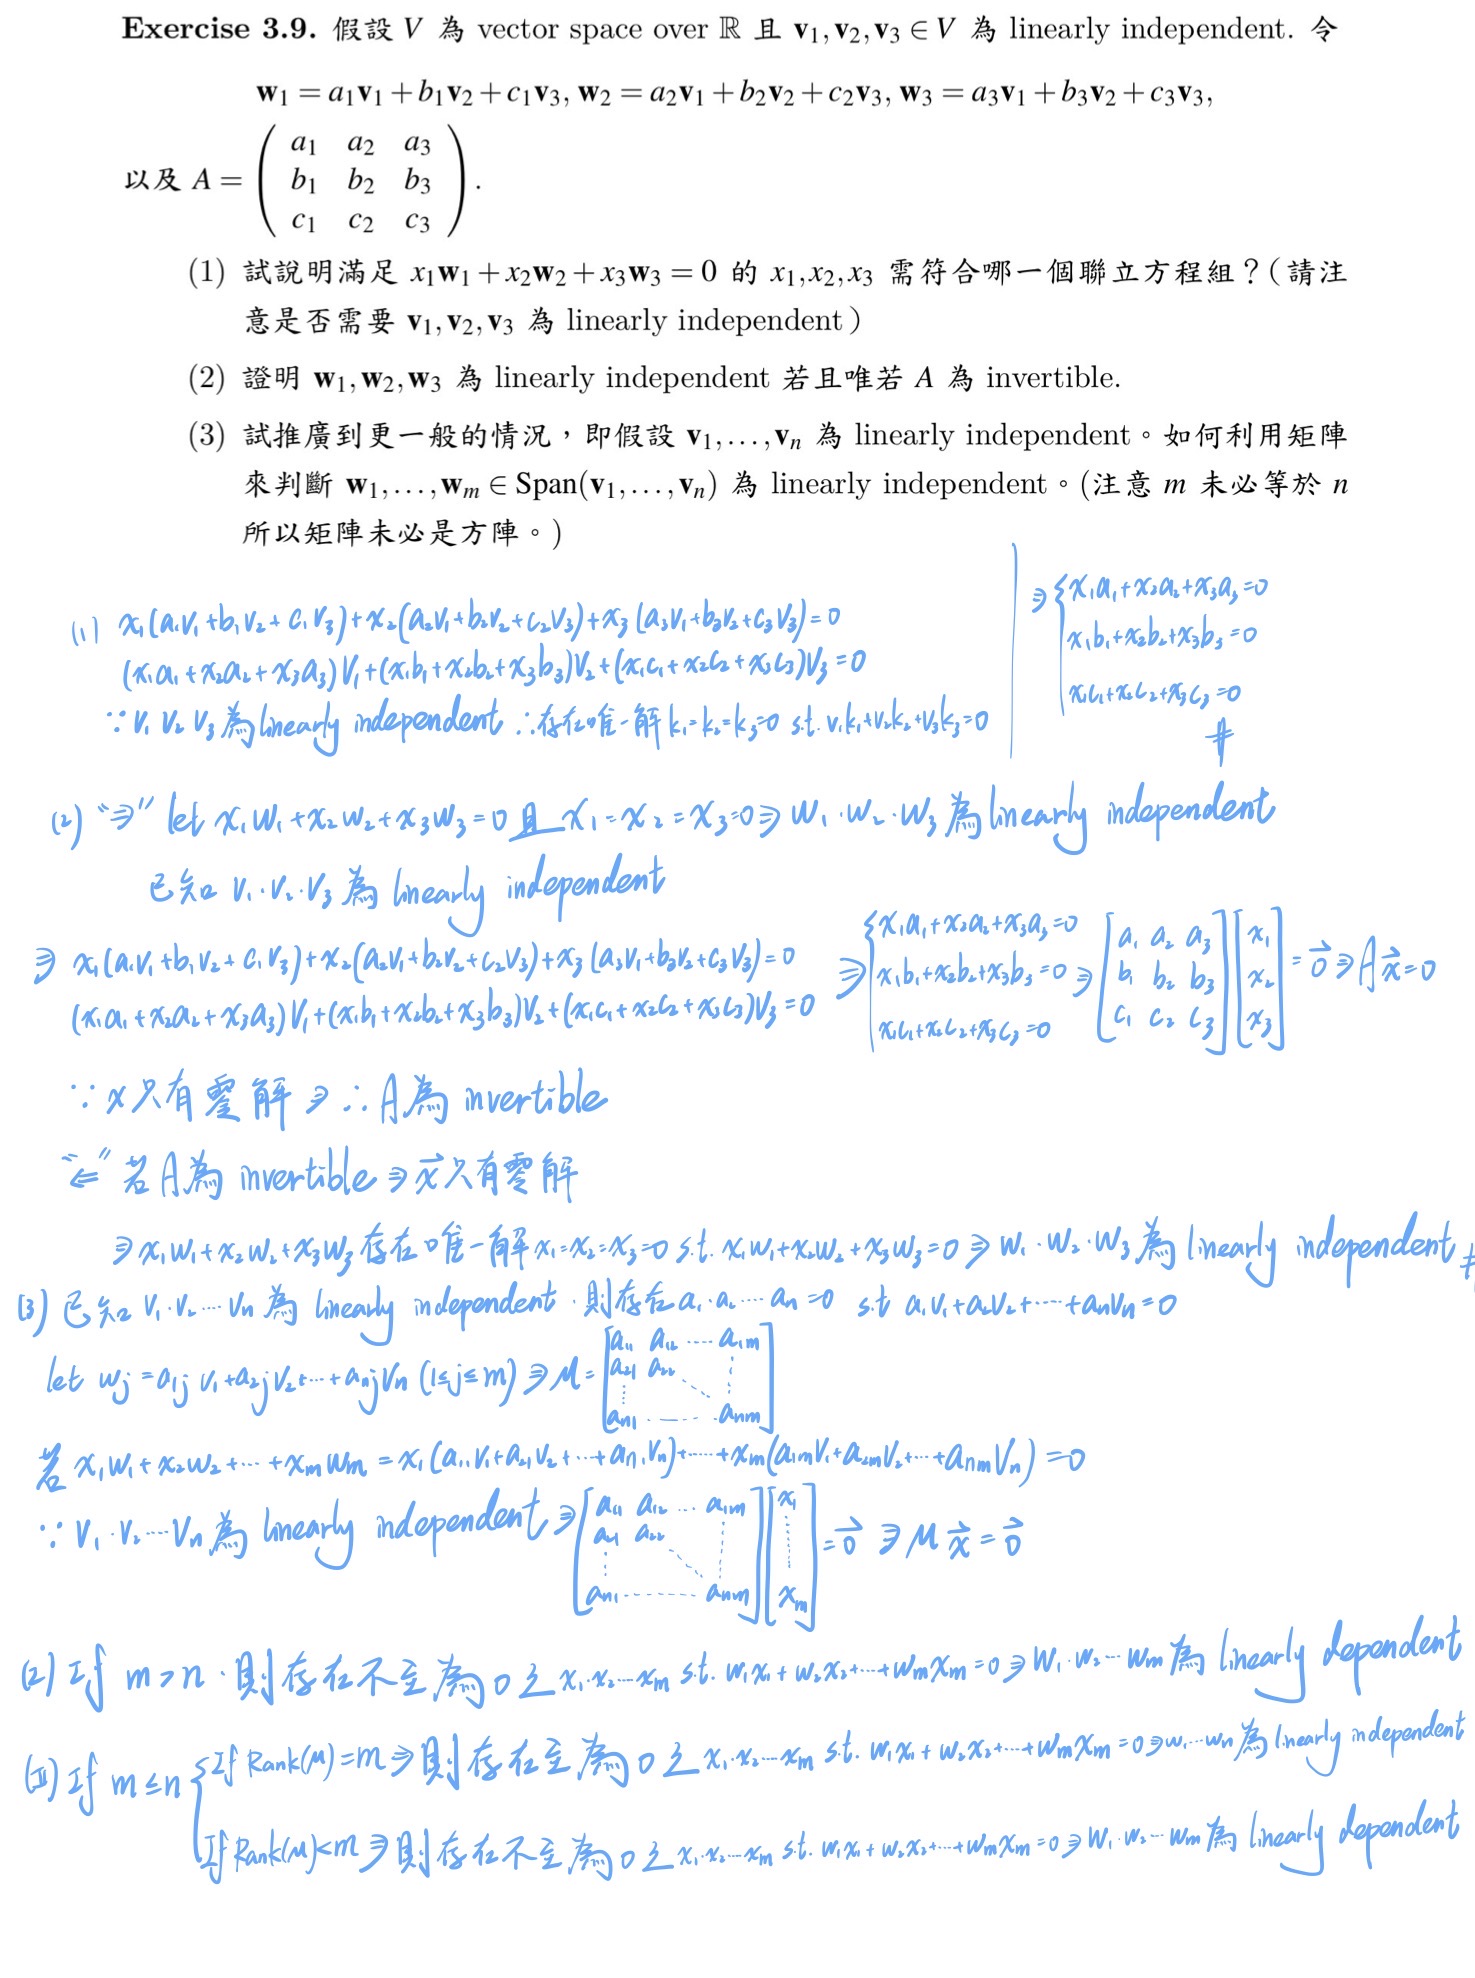 Exercise 3.9. 假設 V 為 vector space over ℝ 且 v₁, v₂, v₃ ∈ V 為 linearly independent. 令
w₁ = a₁v₁ + b₁v₂ + c₁v₃, w₂ = a₂v₁ + b₂v₂ + c₂v₃, w₃ = a₃v₁ + b₃v₂ + c₃v₃,
以及 A = ( a₁ a₂ a₃
b₁ b₂ b₃
c₁ c₂ c₃ ).
(1) 試說明滿足 x₁w₁ + x₂w₂ + x₃w₃ = 0 的 x₁, x₂, x₃ 需符合哪一個聯立方程組？(請注
意是否需要 v₁, v₂, v₃ 為 linearly independent)
(2) 證明 w₁, w₂, w₃ 為 linearly independent 若且唯若 A 為 invertible.
(3) 試推廣到更一般的情況，即假設 v₁,...,vₙ 為 linearly independent。如何利用矩陣
來判斷 w₁,...,wₘ ∈ Span(v₁,...,vₙ) 為 linearly independent。(注意 m 未必等於 n
所以矩陣未必是方陣。)
(1) x₁(a₁v₁+b₁v₂+c₁v₃)+x₂(a₂v₁+b₂v₂+c₂v₃)+x₃(a₃v₁+b₃v₂+c₃v₃)=0
(x₁a₁+x₂a₂+x₃a₃)v₁+(x₁b₁+x₂b₂+x₃b₃)v₂+(x₁c₁+x₂c₂+x₃c₃)v₃=0
∵ v₁ v₂ v₃ 為 linearly independent ∴ 存在唯一解 k₁=k₂=k₃=0 s.t. v₁k₁+v₂k₂+v₃k₃=0
⇒ { x₁a₁+x₂a₂+x₃a₃=0
x₁b₁+x₂b₂+x₃b₃=0
x₁c₁+x₂c₂+x₃c₃=0
#
(2) "⇒" let x₁w₁+x₂w₂+x₃w₃=0 且 x₁=x₂=x₃=0 ⇒ w₁·w₂·w₃ 為 linearly independent
已知 v₁·v₂·v₃ 為 linearly independent
⇒ x₁(a₁v₁+b₁v₂+c₁v₃)+x₂(a₂v₁+b₂v₂+c₂v₃)+x₃(a₃v₁+b₃v₂+c₃v₃)=0
(x₁a₁+x₂a₂+x₃a₃)v₁+(x₁b₁+x₂b₂+x₃b₃)v₂+(x₁c₁+x₂c₂+x₃c₃)v₃=0
⇒ { x₁a₁+x₂a₂+x₃a₃=0
x₁b₁+x₂b₂+x₃b₃=0
x₁c₁+x₂c₂+x₃c₃=0
⇒ [ a₁ a₂ a₃
b₁ b₂ b₃
c₁ c₂ c₃ ] [ x₁
x₂
x₃ ] = 0⃗ ⇒ Ax⃗=0
∵ x 只有零解 ⇒ ∴ A為 invertible
"⇐" 若A為 invertible ⇒ x⃗ 只有零解
⇒ x₁w₁+x₂w₂+x₃w₃ 存在唯一解 x₁=x₂=x₃=0 s.t. x₁w₁+x₂w₂+x₃w₃=0 ⇒ w₁·w₂·w₃ 為 linearly independent #
(3) 已知 v₁·v₂ ··· vₙ 為 linearly independent · 則存在 a₁·a₂ ··· aₙ=0 s.t a₁v₁+a₂v₂+···+aₙvₙ=0
let wⱼ = a₁ⱼv₁+a₂ⱼv₂+···+aₙⱼvₙ (1≤j≤m) ⇒ M = [ a₁₁ a₁₂ ··· a₁ₘ
a₂₁ a₂₂
aₙ₁ ··· aₙₘ ]
若 x₁w₁+x₂w₂+···+xₘwₘ = x₁(a₁₁v₁+a₂₁v₂+···+aₙ₁vₙ)+···+xₘ(a₁ₘv₁+a₂ₘv₂+···+aₙₘvₙ)=0
∵ v₁·v₂ ··· vₙ 為 linearly independent ⇒ [ a₁₁ a₁₂ ··· a₁ₘ
a₂₁ a₂₂
aₙ₁ ··· aₙₘ ] [ x₁
xₘ ] = 0⃗ ⇒ Mx⃗ = 0⃗
(I) If m>n · 則存在不全為0之 x₁·x₂ ··· xₘ s.t. w₁x₁+w₂x₂+···+wₘxₘ=0 ⇒ w₁·w₂ ··· wₘ 為 linearly dependent
(II) If m≤n { If Rank(M)=m ⇒ 則存在全為0之 x₁·x₂ ··· xₘ s.t. w₁x₁+w₂x₂+···+wₘxₘ=0 ⇒ w₁ ··· wₙ 為 linearly independent
If Rank(M)<m ⇒ 則存在不全為0之 x₁·x₂ ··· xₘ s.t. w₁x₁+w₂x₂+···+wₘxₘ=0 ⇒ w₁·w₂ ··· wₘ 為 linearly dependent